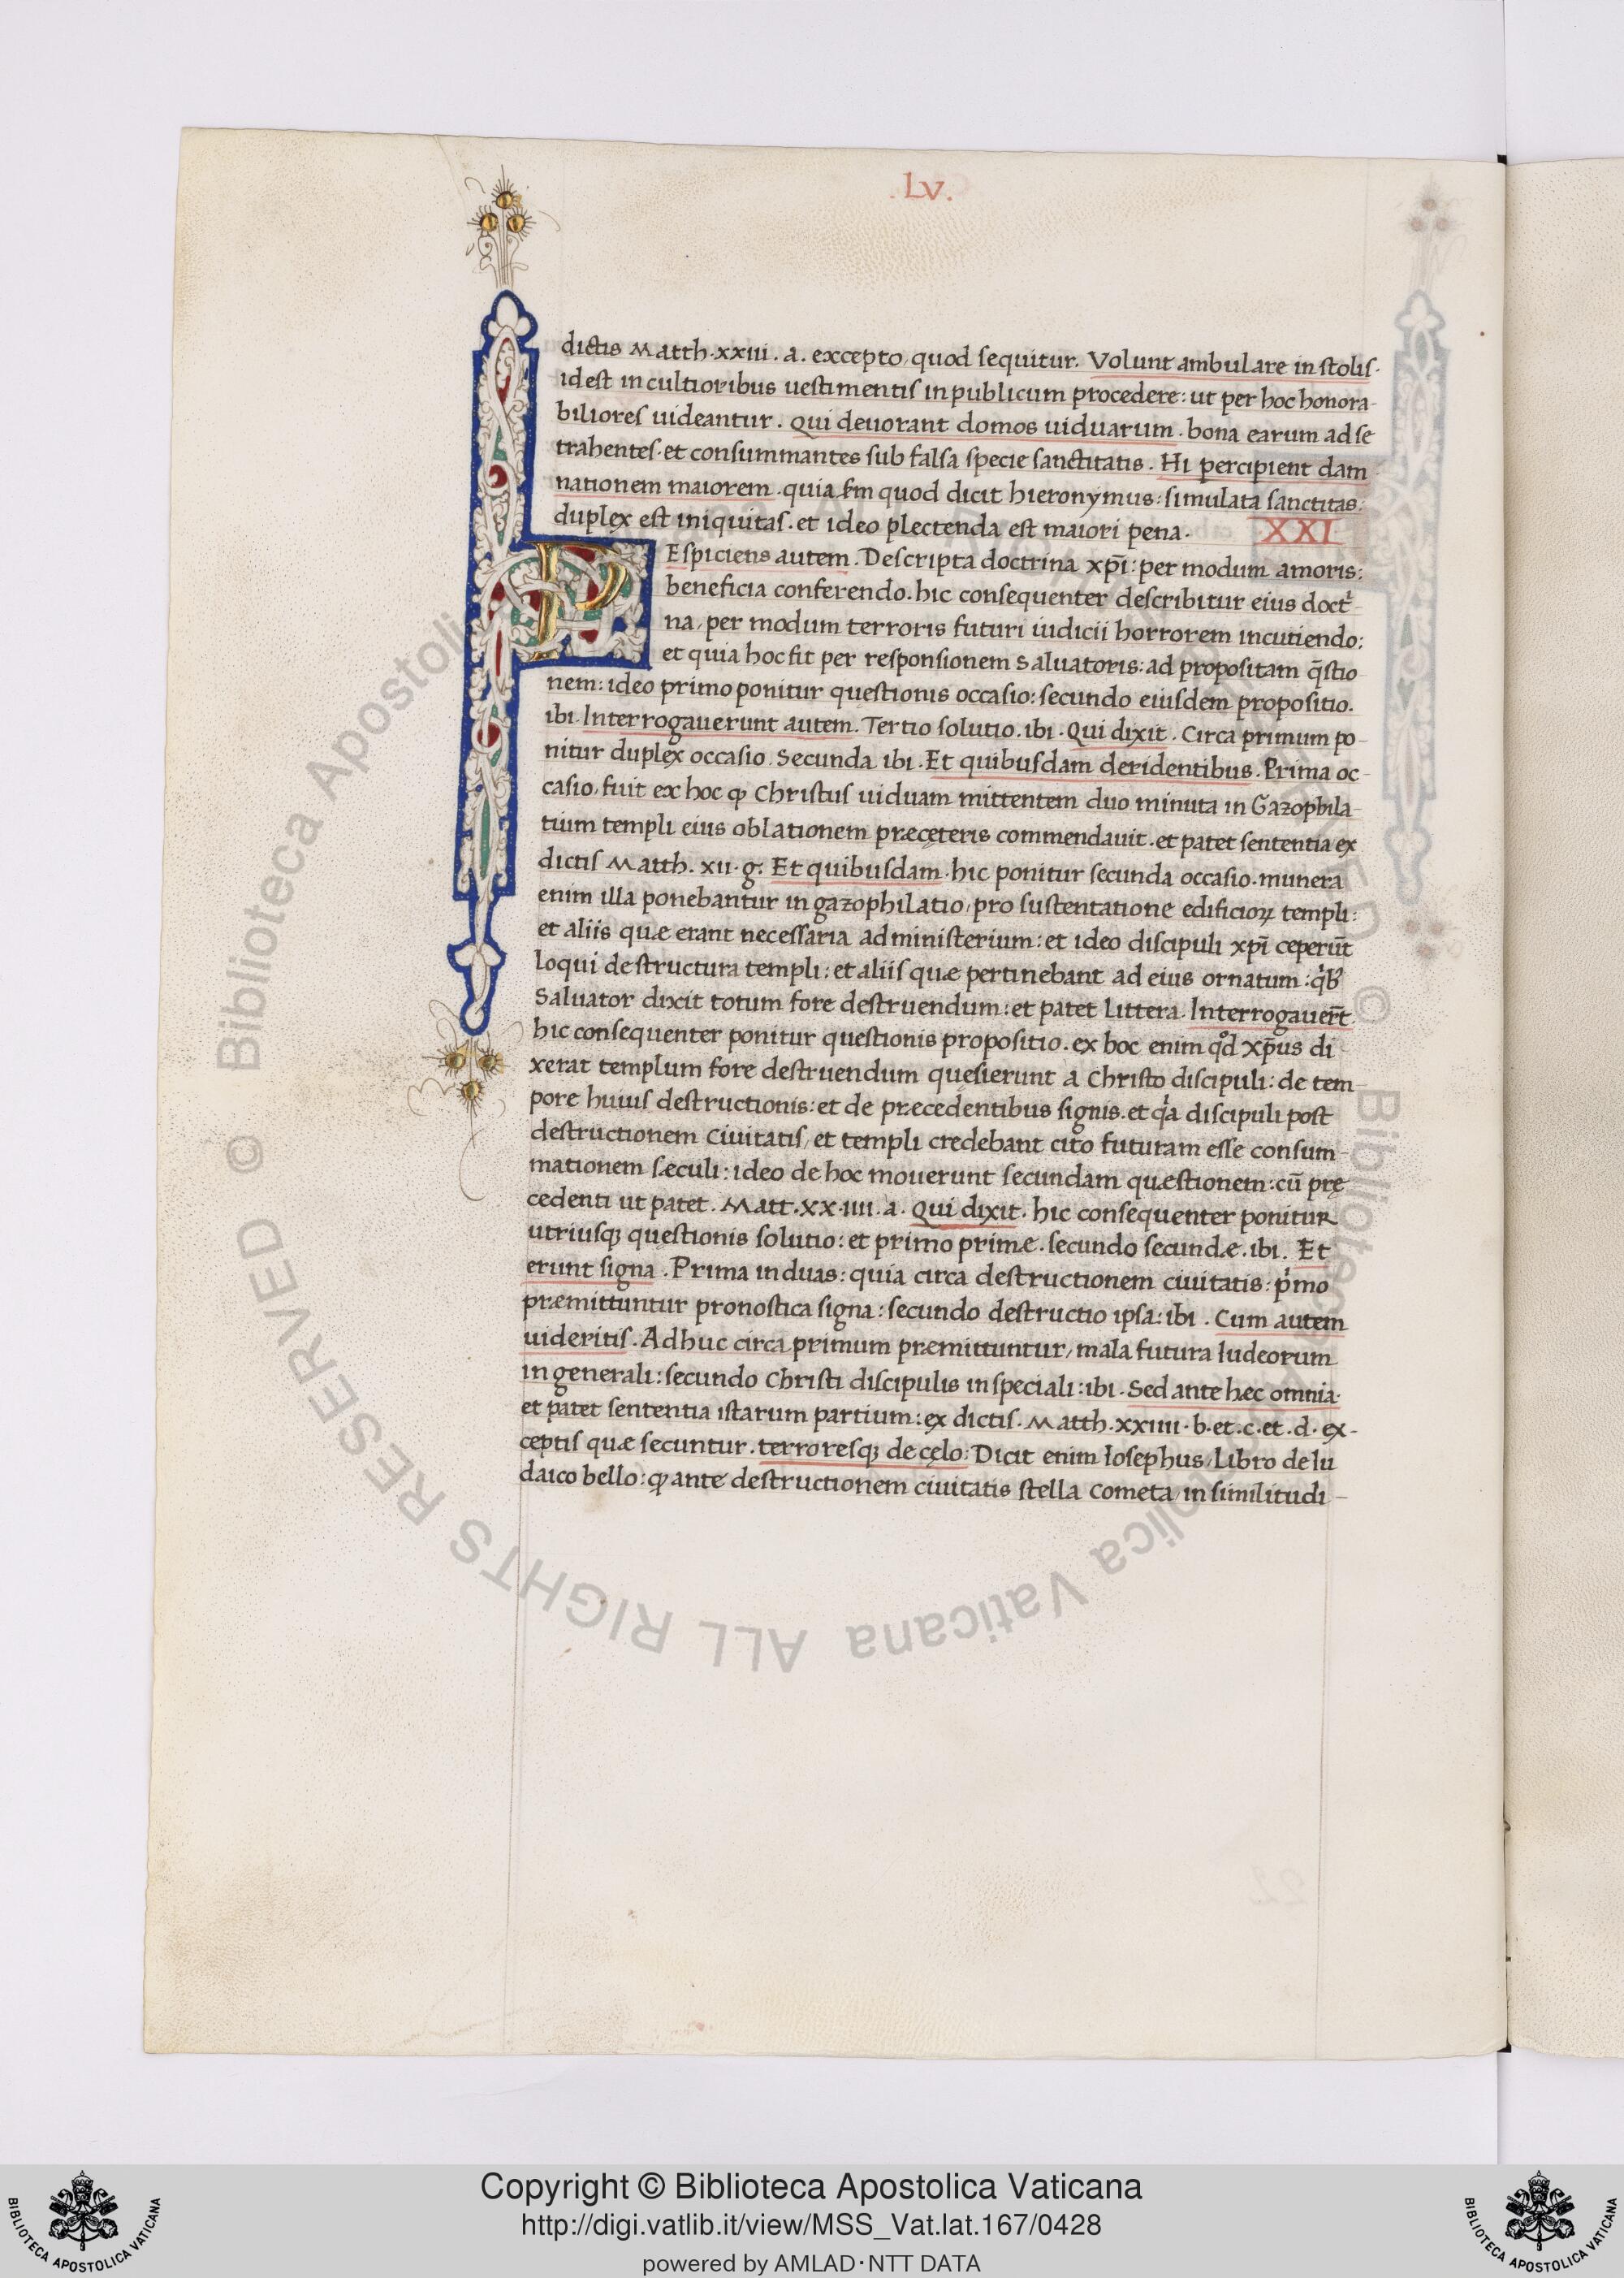 .LV.
dictis Matth. xxiii. a. excepto, quod sequitur. Volunt ambulare in stolis.
idest in cultioribus uestimentis in publicum procedere: ut per hoc honora-
biliores uideantur. Qui deuorant domos uiduarum. bona earum ad se
trahentes. et consummantes sub falsa specie sanctitatis. Hi percipient dam
nationem maiorem. quia scđm quod dicit hieronymus: simulata sanctitas:
duplex est iniquitas. et ideo plectenda est maiori pena. XXI
REspiciens autem. Descripta doctrina xp̄i: per modum amoris:
beneficia conferendo. hic consequenter describitur eius doctⁱ-
na, per modum terroris futuri iudicii horrorem incutiendo:
et quia hoc fit per responsionem Saluatoris: ad propositam q̄stio
nem: ideo primo ponitur questionis occasio: secundo eiusdem propositio.
ibi. Interrogauerunt autem. Tertio solutio. ibi. Qui dixit. Circa primum po-
nitur duplex occasio. Secunda ibi. Et quibusdam deridentibus. Prima oc-
casio, fuit ex hoc ꝙ Christus uiduam mittentem duo minuta in Gazophila-
tium templi eius oblationem præcęteris commendauit. et patet sententia ex
dictis Matth. xii. g. Et quibusdam. hic ponitur secunda occasio. munera
enim illa ponebantur in gazophilatio, pro sustentatione edificioꝝ templi:
et aliis quæ erant necessaria ad ministerium: et ideo discipuli xp̄i ceperūt
loqui de structura templi: et aliis quæ pertinebant ad eius ornatum: qⁱb᾽
Saluator dixit totum fore destruendum: et patet Littera. Interrogauer̄t.
hic consequenter ponitur questionis propositio. ex hoc enim qͦd xp̄us di
xerat templum fore destruendum quesierunt a Christo discipuli: de tem-
pore huius destructionis: et de præcedentibus signis. et qⁱa discipuli post
destructionem Ciuitatis, et templi credebant cito futuram esse consum-
mationem sæculi: ideo de hoc mouerunt secundam quæstionem: cū prę
cedenti ut patet. Matt. xx.iiii. a. Qui dixit. hic consequenter ponitur
utriusqꝫ quęstionis solutio: et primo primæ. secundo secundæ. ibi. Et
erunt signa. Prima in duas: quia circa destructionem ciuitatis: pⁱmo
præmittuntur pronostica signa: secundo destructio ipsa: ibi. Cum autem
uideritis. Adhuc circa primum præmittuntur, mala futura Iudeorum
in generali: secundo Christi discipulis in speciali: ibi. Sed ante hæc omnia.
et patet sententia istarum partium: ex dictis. Matth. xxiiii. b. et. c. et. d. ex-
ceptis quæ secuntur. terroresqꝫ de cęlo: Dicit enim Iosephus, Libro de Iu
daico bello: ꝙ ante destructionem ciuitatis stella Cometa, in similitudi-
Copyright © Biblioteca Apostolica Vaticana
http://digi.vatlib.it/view/MSS_Vat.lat.167/0428
powered by AMLAD·NTT DATA